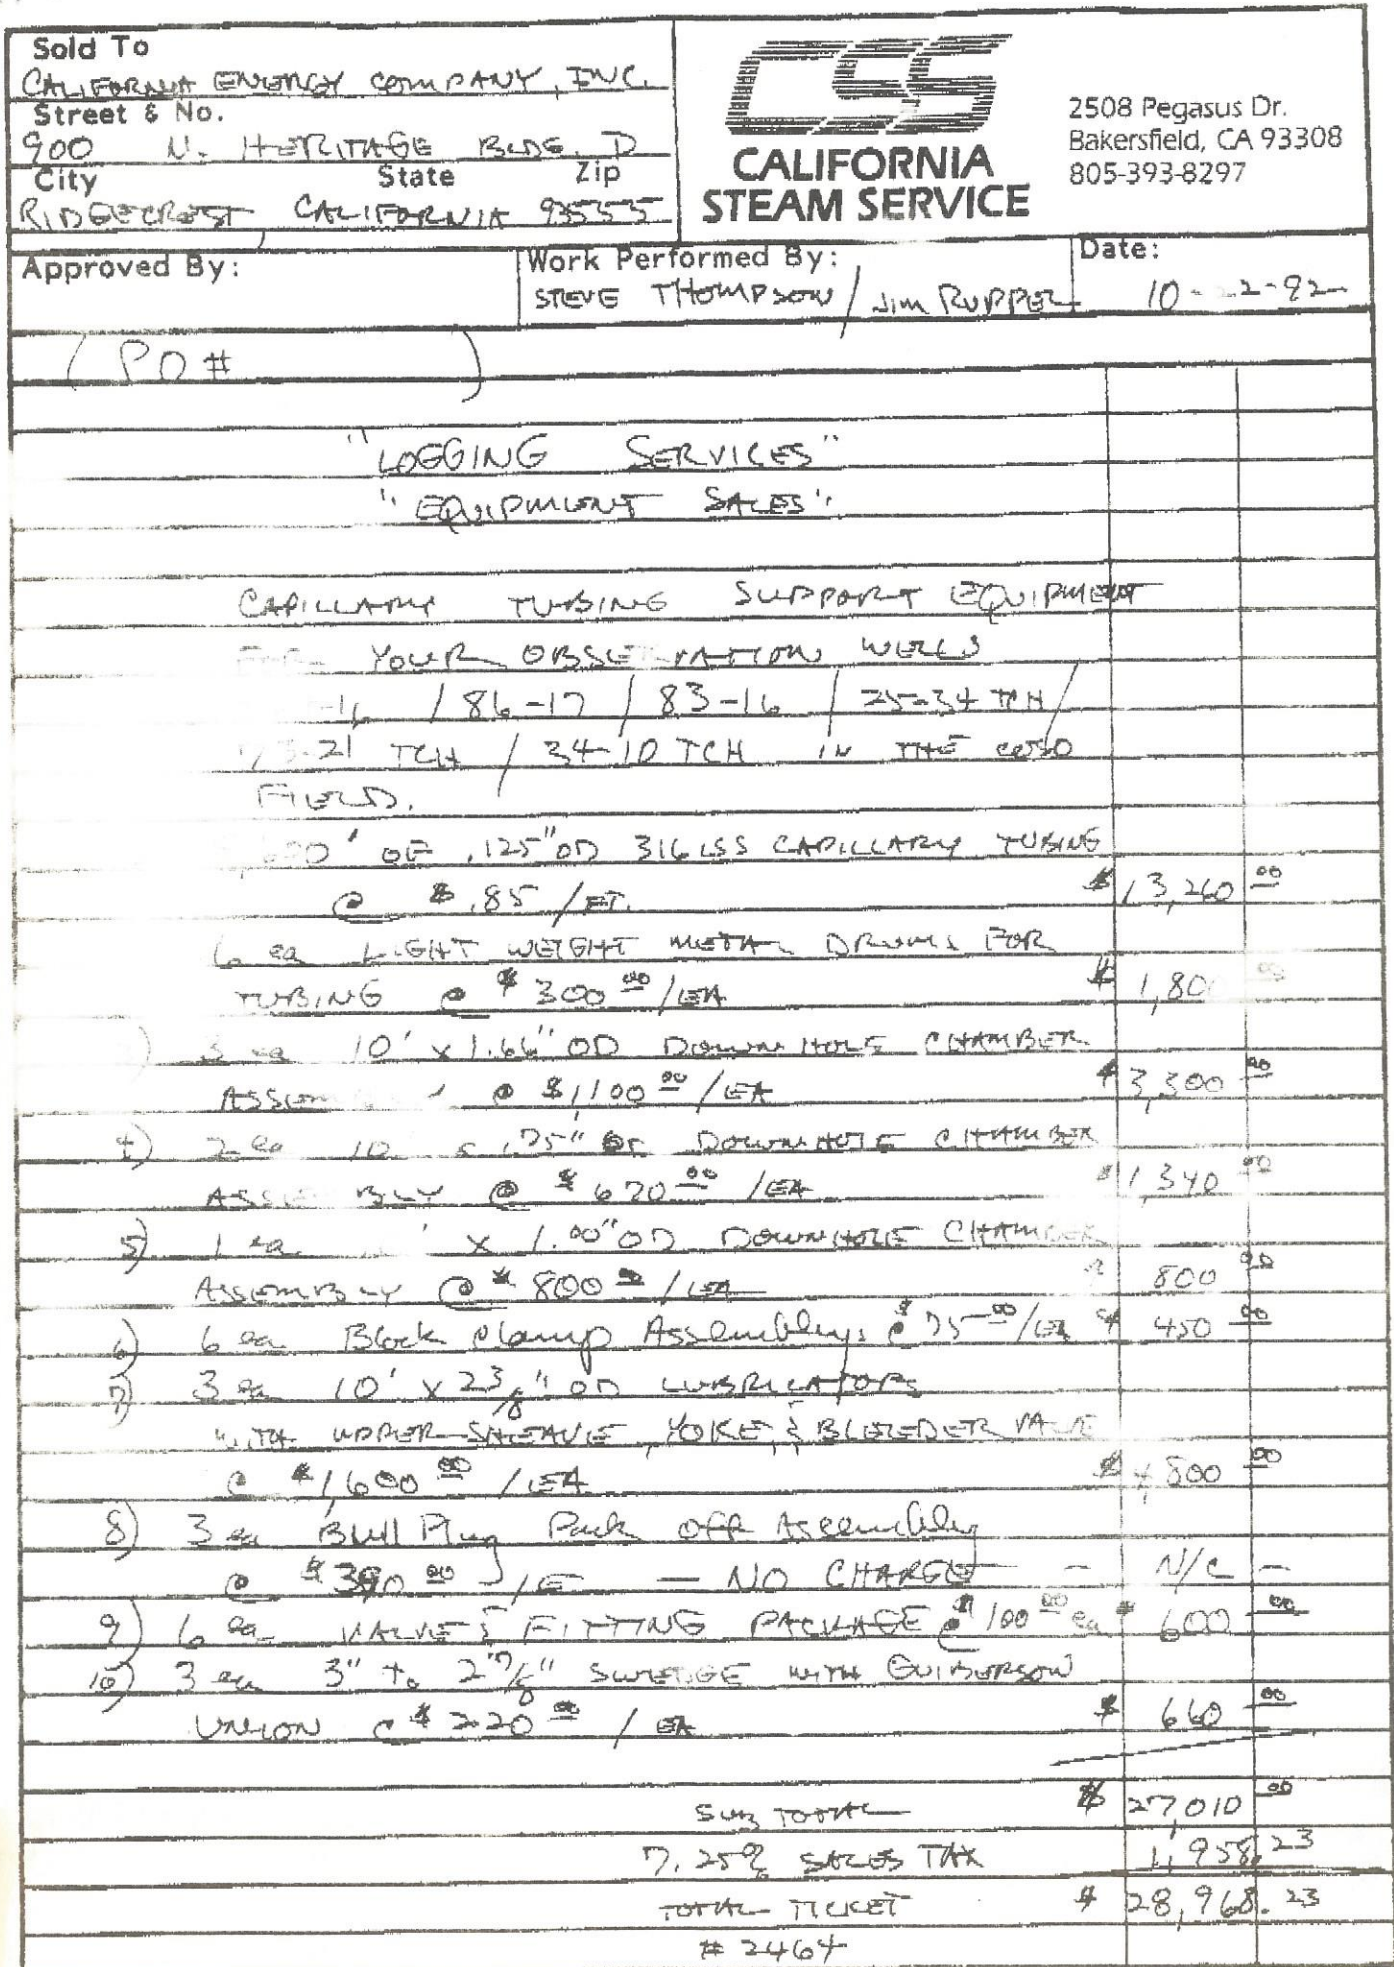 Sold To
CALIFORNIA ENERGY COMPANY, INC.
Street & No.
900 N. HERITAGE BLDG. D
City State Zip
RIDGECREST, CALIFORNIA 93555
CSS
CALIFORNIA
STEAM SERVICE
2508 Pegasus Dr.
Bakersfield, CA 93308
805-393-8297
Approved By:
Work Performed By:
STEVE THOMPSON / JIM RUPPEL
Date:
10- 2-92
( PO # )
"LOGGING SERVICES"
"EQUIPMENT SALES"
CAPILLARY TUBING SUPPORT EQUIPMENT
FOR YOUR OBSERVATION WELLS
-16 / 86-17 / 83-16 / 25-34 TCH /
-21 TCH / 34-10 TCH IN THE COSO
FIELD.
' OF .125" OD 316 LSS CAPILLARY TUBING
@ $ .85 /FT. $ 13,260 00
6 ea LIGHT WEIGHT METAL DRUMS FOR
TUBING @ $ 300 00 /EA $ 1,800 00
3 ea 10' x 1.66" OD DOWNHOLE CHAMBER
@ $1,100 00 / EA $ 3,300 00
4) 2 ea 10 x .75" OD DOWNHOLE CHAMBER
ASSEMBLY @ $ 670 00 /EA $ 1,340 00
5) 1 ea ' x 1.00" OD DOWNHOLE CHAMBER
ASSEMBLY @ $ 800 00 / EA $ 800 00
6) 6 ea Block Clamp Assemblys @ $ 75 00/EA $ 450 00
7) 3 ea 10' x 2 3/8" OD LUBRICATORS
WITH UPPER SHEAVE, YOKE, & BLEEDER VALVE
@ $1,600 00 /EA $ 4,800 00
8) 3 ea Bull Plug Pack off Assembly
@ $ 390 00 /E — NO CHARGE — N/C —
9) 6 ea VALVE & FITTING PACKAGE @ $100 00 ea $ 600 00
10) 3 ea 3" to 2 7/8" SWEDGE WITH GUIBERSON
UNION @ $ 220 00 / EA $ 660 00
SUB TOTAL $ 27,010 00
7.25% SALES TAX 1,958.23
TOTAL TICKET $ 28,968.23
# 2464